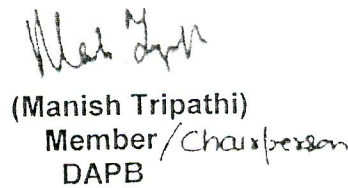 (Manish Tripathi)
Member/Chairperson
DAPB